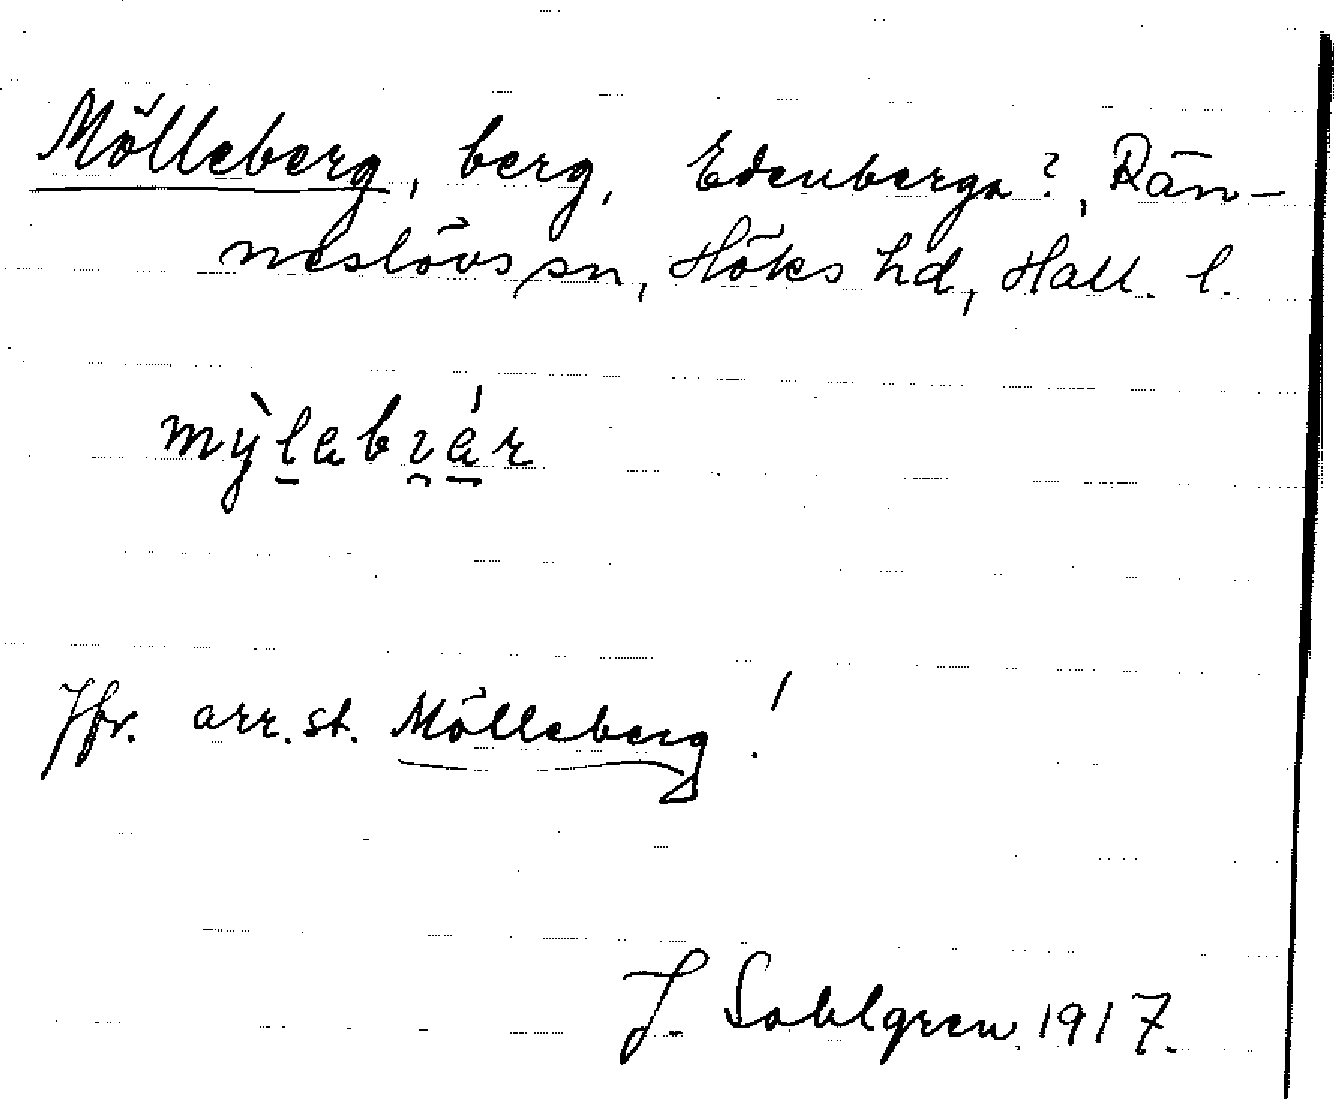 Mölleberg, berg, Edenberga?, Rän-
neslövs sn, Höks hd, Hall. l.
mỳlabɿár
Jfr. arr.st. Mölleberg!
J. Sahlgren 1917.